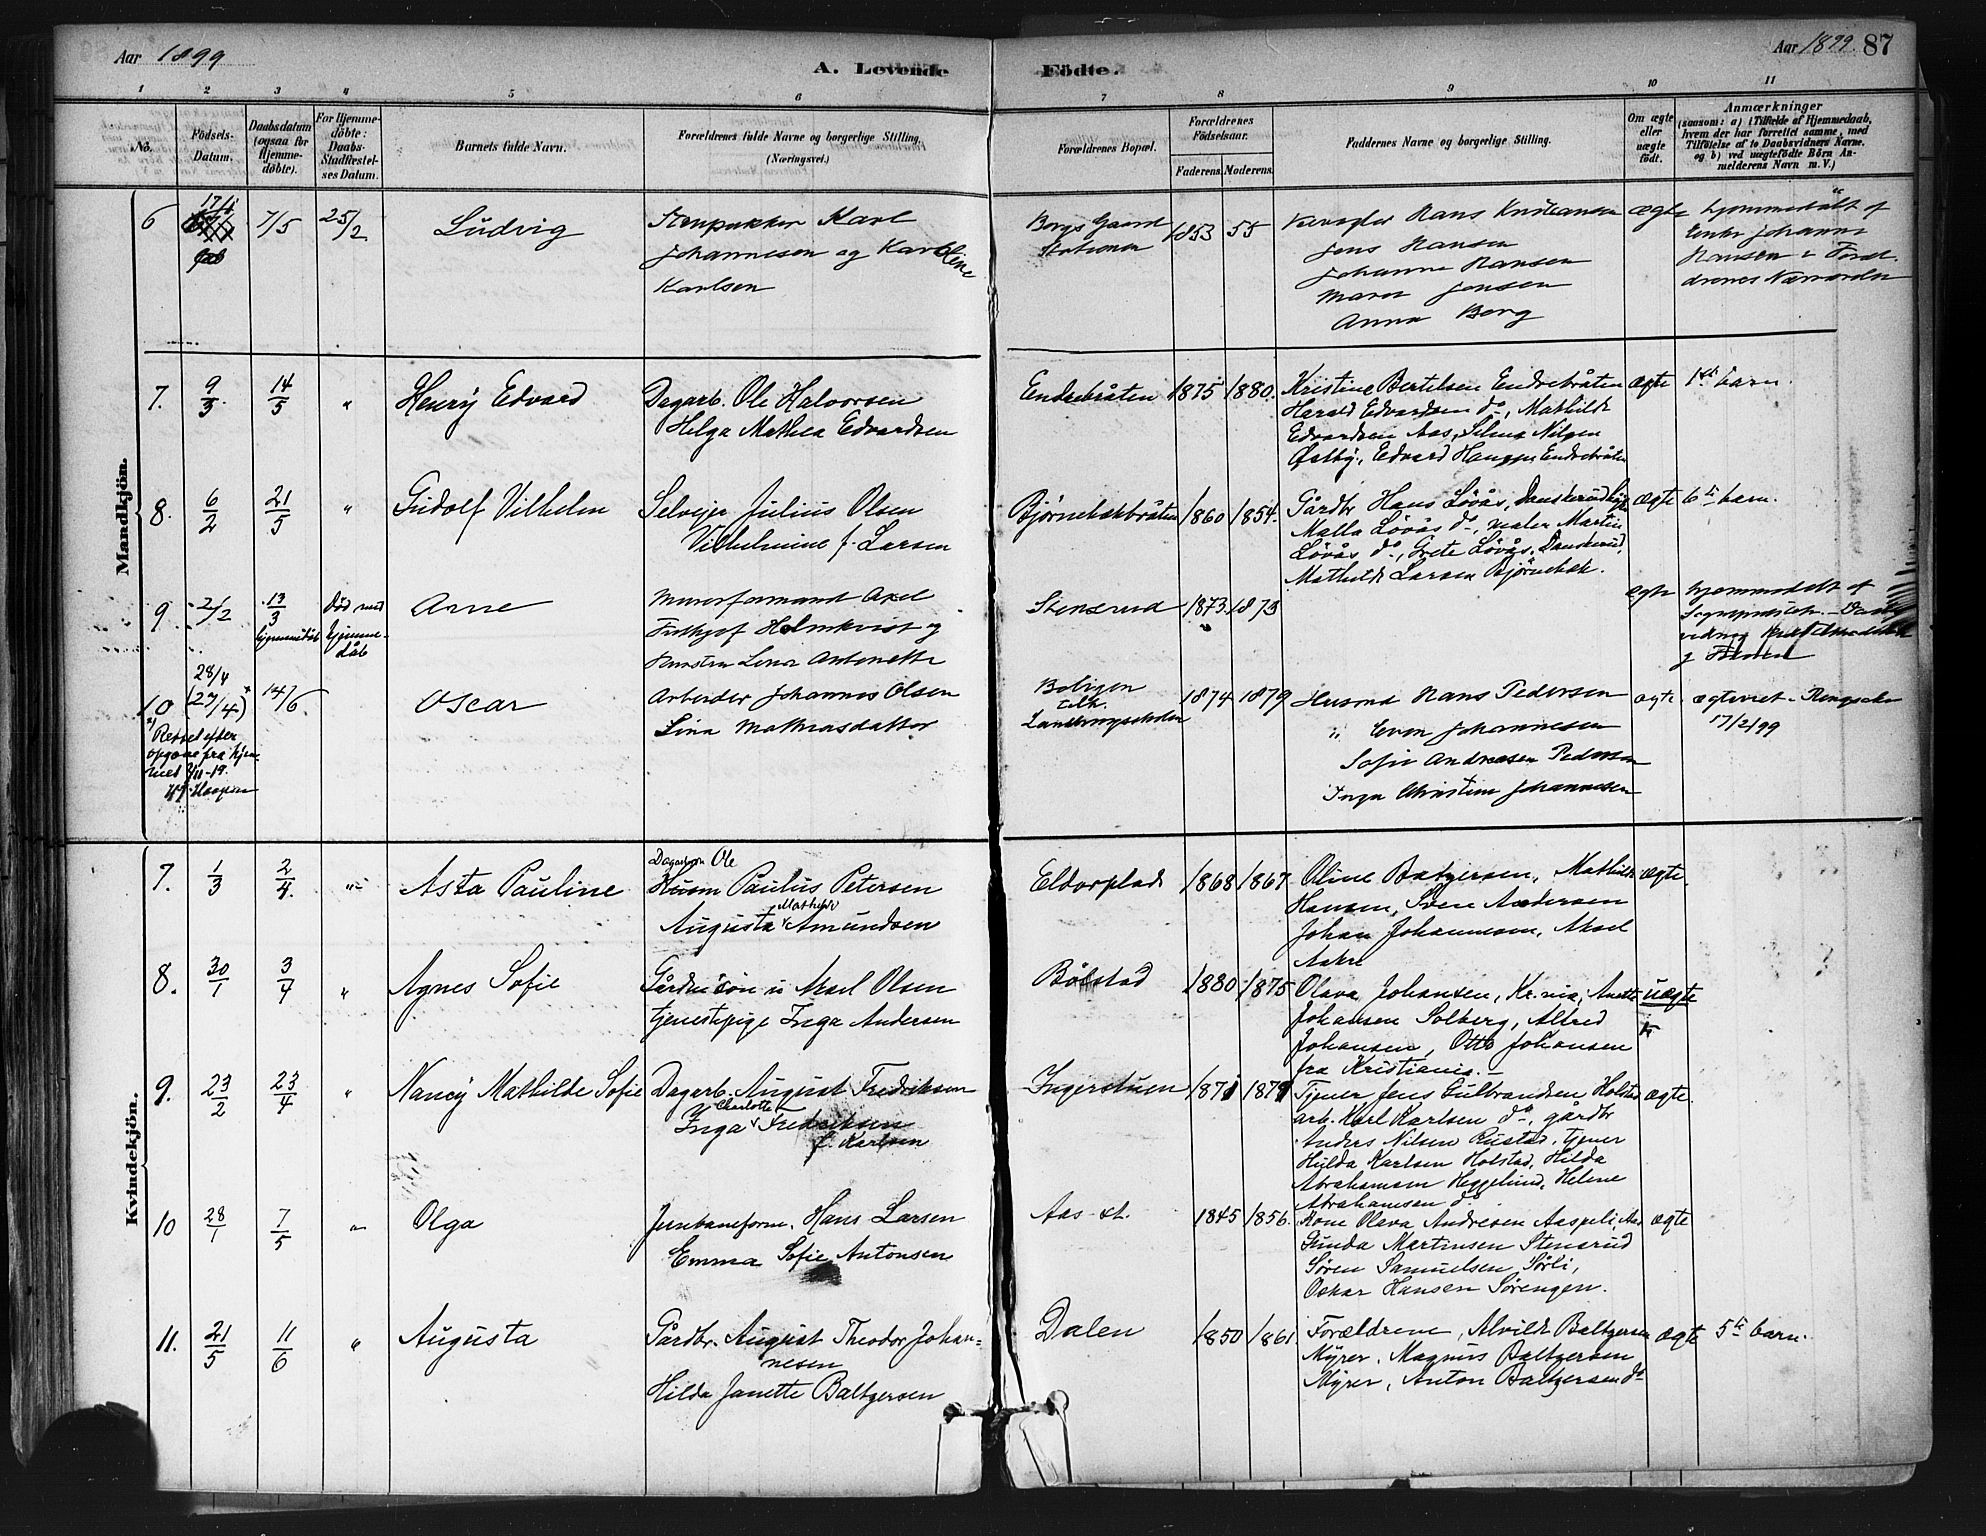 Aar 1899
A. Levende
Födte.
Aar 1899. 87
1 2 3 4 5 6 7 8 9 10 11
No.
Födsels-
Datum.
Daabsdatum
(ogsaa for
Hjemme-
döbte).
For Hjemme-
döbte:
Daabs-
Stadfæstel-
ses Datum.
Barnets fulde Navn.
Forældrenes fulde Navne og borgerlige Stilling.
(Næringsvei.)
Forældrenes Bopæl.
Forældrenes
Födselsaar.
Faderens. Moderens.
Faddernes Navne og borgerlige Stilling.
Om ægte
eller
uægte
födt.
Anmærkninger
(saasom: a) i Tilfælde af Hjemmedaab,
hvem der har forrettet samme, med
Tilföielse af to Daabsvidners Navne.
og b) ved uægtefödte Börn An-
melderens Navn m. V.)
Mandkjön.
6 17/1 7/5 25/2 Ludvig
Stenpukker Karl
Johannesen og Karoline
Karlsen
Borgs Gaard
Stationen
1853 55
Hans Kristiansen
Jens Hansen
Johanne Hansen
Maren Jensen
Anna Berg
ægte
hjemmedøbt af
Enke Johanne
Hansen i Foræl-
drenes Nærværelse
7. 9/3 14/5 " Henry Edvard
Dagarb. Ole Halvorsen
Helga Mathea Edvardsen
Endrebråten 1875 1880.
Kristine Bertelsen Endrebråten
Harald Edvardsen do, Mathilde
Edvardsen Aas, Selma Nilsen
Østby, Edvard Hansen Endrebråten
ægte 1ste barn.
8. 6/2 21/5 " Gudolf Vilhelm
Selveier Julius Olsen
Vilhelmine f. Larsen
Bjørnebekbråten 1860 1854.
Gårdbr Hans Løvås, Danskerud
Malla Løvås do, maler Martin
Løvås do, Grete Løvås, Danskerud,
Mathilde Larsen Bjørnebek.
ægte 6te barn.
9. 2/2 13/3
hjemmedøb
Død med
hjemme-
dåb
Arne
Murerformand Axel
Frithjof Holmkvist og
Hustru Lina Antonette
Stensrud 1873 1873
ægte
hjemmedøbt af
Sognepresten - Daabs
10 28/4
(27/4)x 14/6 Oscar
x) Rettet efter
opgave fra hjem-
met 3/11-19.
Arbeider Johannes Olsen
Lina Mathiasdatter
Boligen
tilh.
Landbrugsskolen
1874 1879
Husmd Hans Pedersen
" Even Johannesen
Sofie Andreasen Pedersen
Inga Christine Johannesen
ægte
ægteviet
17/2/99
Kvindekjön.
7. 1/3 2/4. " Asta Pauline
Dagarbm Ole
Husm Paulus Petersen
Mathilde
Augusta Amundsen
Eldorplads 1868 1867
Oline Batzersen, Mathilde
Hansen, Sven Andersen
Johan Johannesen, Aksel
Aakre
ægte.
8. 30/1 3/4 " Agnes Sofie
Gårdmsøn u Aksel Olsen
tjenestepige Inga Andersen
Bølstad 1880 1875
Olava Johansen, Kr.nia, Anette
Johansen Solberg, Alfred
Johansen, Otto Johansen
fra Kristiania.
uægte
9. 23/2 23/4 " Nancy Mathilde Sofie
Dagarb. August Fredriksen
Charlotte
Inga Fredriksen
f. Karlsen
Ingerstuen 1871 1879
Tjener Jens Gulbrandsen Holstad
arb. Karl Karlsen do, gårdbr
Anders Nilsen Rustad, tjener
Hulda Karlsen Holstad, Hilda
Abrahamsen Heggelund, Helene
Abrahamsen do
ægte.
10 28/1 7/5 " Olga
Jernbaneform. Hans Larsen
Emma Sofie Antonsen
Aas st. 1845 1856.
Kone Olava Andresen Aaspeli, Aas
Gunda Martinsen Stensrud
Søren Samuelsen Sørli,
Oskar Hansen Sørengen.
ægte
11. 21/5 11/6 " Augusta
Gårdbr. August Theodor Johan-
nesen
Hilda Janette Baltzersen
Dalen 1850 1861
Forældrene, Alvilde Baltzersen
Myrer, Magnus Baltzersen
Myrer, Anton Baltzersen do
ægte 5te barn.